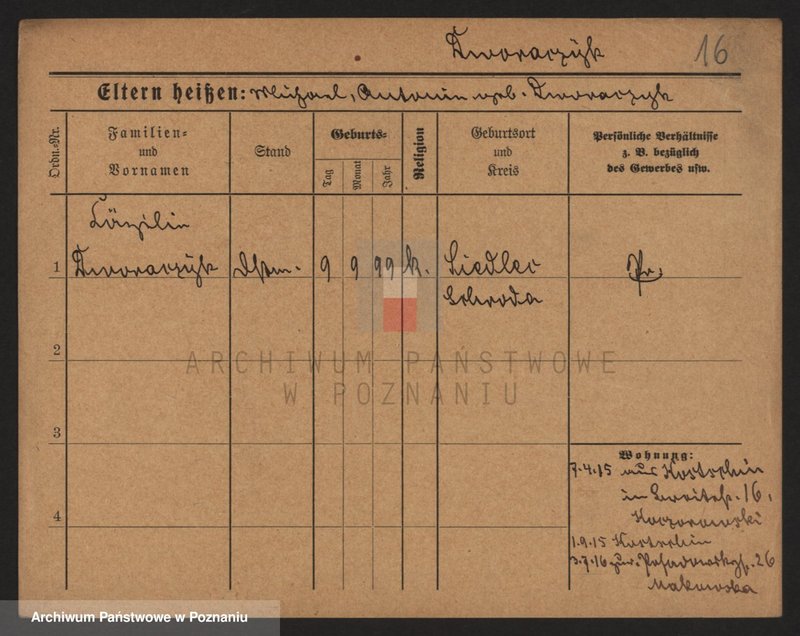 Dworaczyk 16
Eltern heißen: Michael, Antonin geb. Dworaczyk
Ordn.-Nr.
Familien-
und
Vornamen
Stand
Geburts-
Tag
Monat
Jahr
Religion
Geburtsort
und
Kreis
Persönliche Verhältnisse
z. B. bezüglich
des Gewerbes usw.
Cäzilie
1 Dworaczyk 9 9 99 k. Siedlec Pr.
Schroda
2
ARCHIWUM PAŃSTWOWE
W POZNANIU
3
Wohnung:
7.4.15 aus Kostschin
in Breitestr. 16,
Kaczorowski
4
1.9.15 Kostschin
3.7.16 zur. 26
Makowska
Archiwum Państwowe w Poznaniu